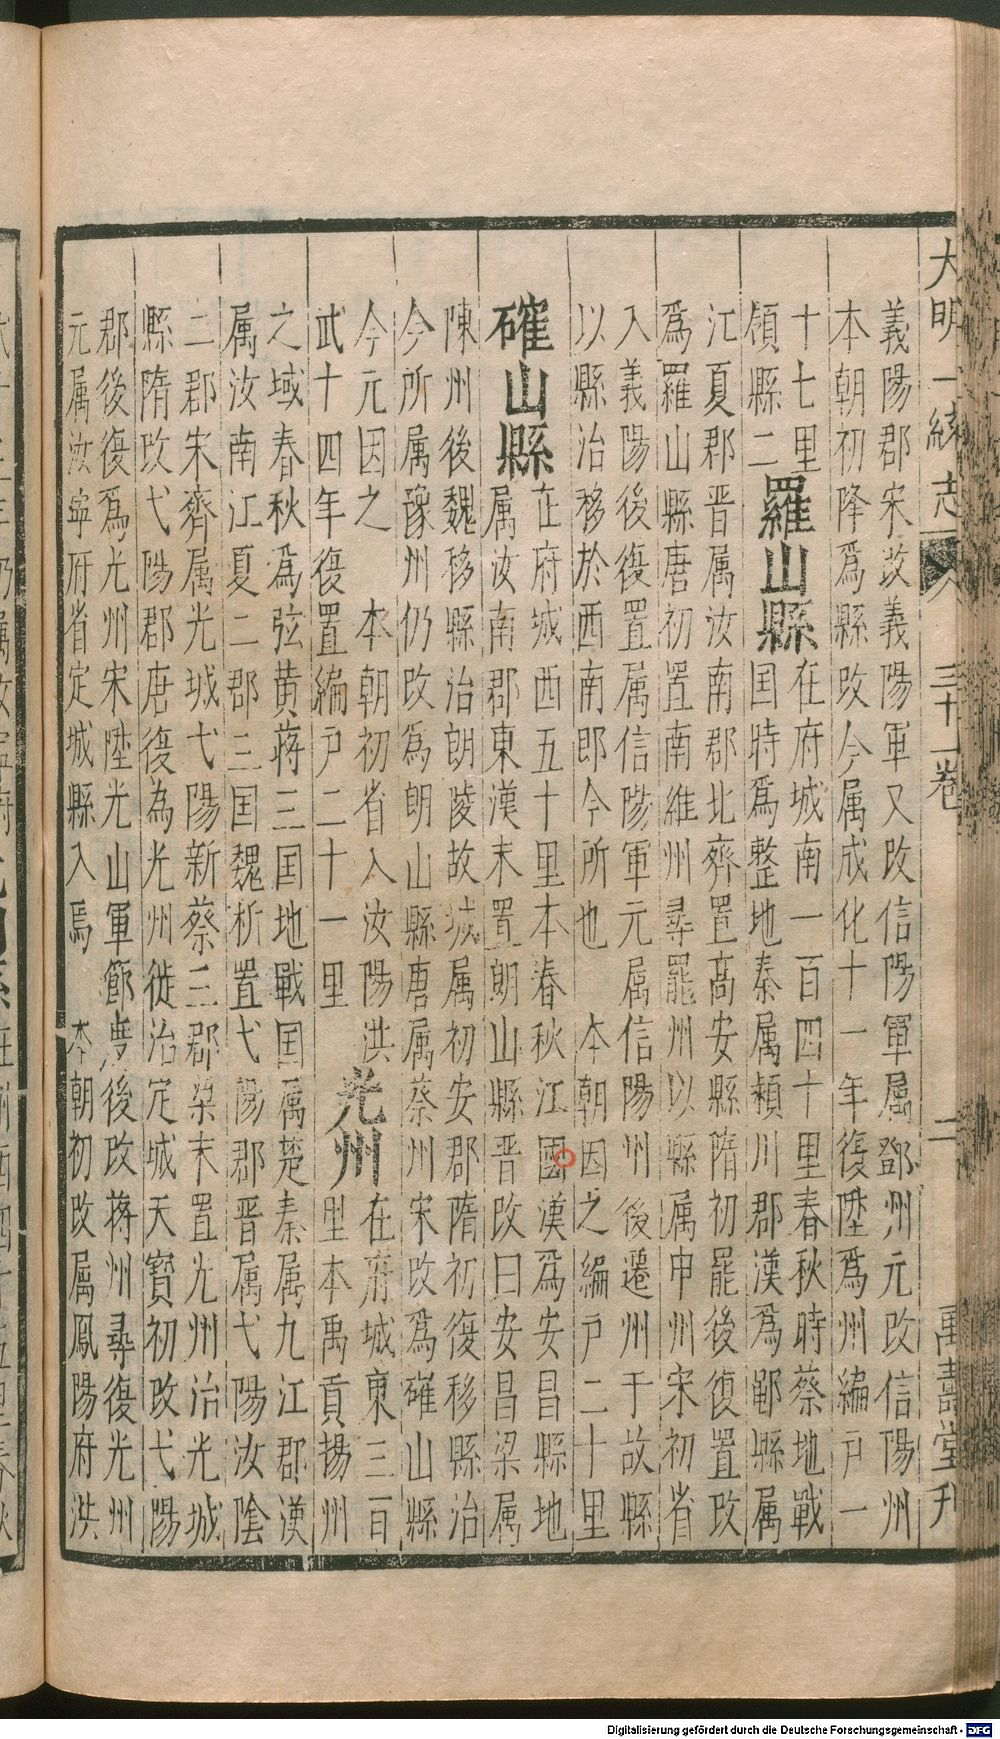 大明一統志 三十一卷 二 萬壽堂刊
義陽郡宋改義陽軍又改信陽軍属鄧州元改信陽州
本朝初降爲縣改今属成化十一年復陞爲州編戶一
十七里
領縣二
羅山縣
在府城南一百四十里春秋時蔡地戰
国時爲整地秦属潁川郡漢爲鄳縣属
江夏郡晉属汝南郡北齊置高安縣隋初罷後復置改
爲羅山縣唐初置南維州尋罷州以縣属申州宋初省
入義陽後復置属信陽軍元属信陽州後遷州于故縣
以縣治移於西南即今所也 本朝因之編戶二十里
確山縣
在府城西五十里本春秋江國漢爲安昌縣地
属汝南郡東漢末置朗山縣晉改曰安昌梁属
陳州後魏移縣治朗陵故城属初安郡隋初復移縣治
今所属豫州仍改爲朗山縣唐属蔡州宋改爲確山縣
今元因之 本朝初省入汝陽洪
武十四年復置編戶二十一里
光州
在府城東三百
里本禹貢揚州
之域春秋爲弦黄蔣三国地戰国属楚秦属九江郡漢
属汝南江夏二郡三国魏析置弋陽郡晉属弋陽汝陰
二郡宋齊属光城弋陽新蔡三郡梁末置光州治光城
縣隋改弋陽郡唐復為光州徙治定城天寶初改弋陽
郡後復爲光州宋陞光山軍節度後改蔣州尋復光州
元属汝寧府省定城縣入焉 本朝初改属鳳陽府洪
Digitalisierung gefördert durch die Deutsche Forschungsgemeinschaft - DFG